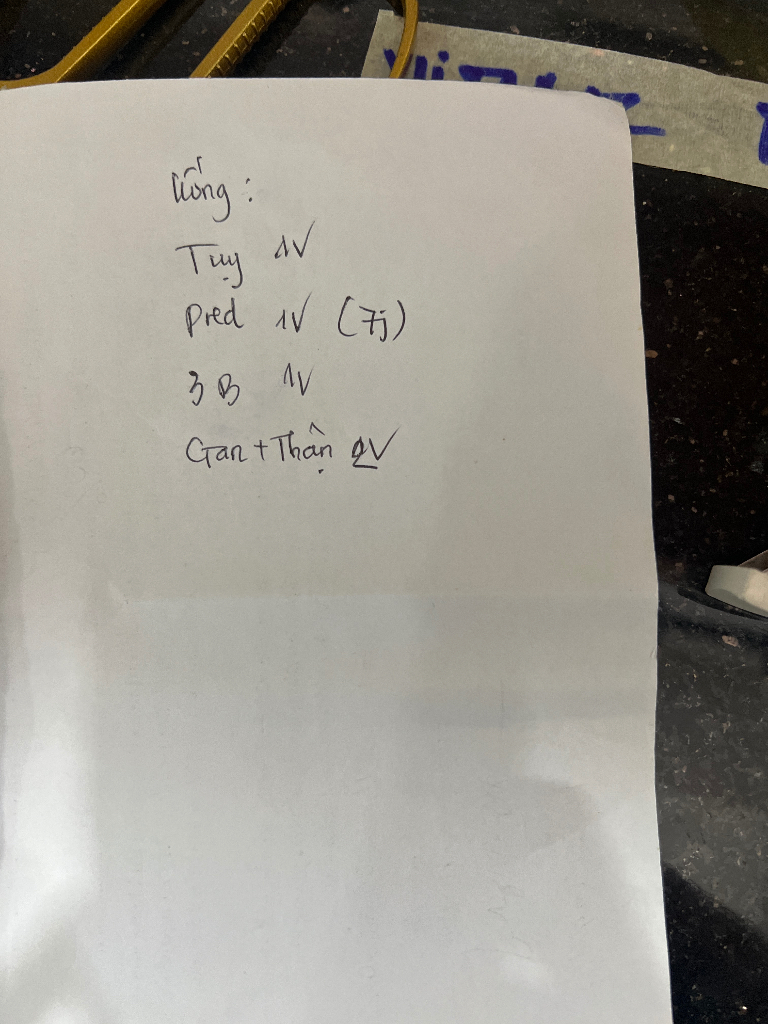 Uống :
Tụy 1V
Pred 1V (7j)
3B 1V
Gan + Thận 2V